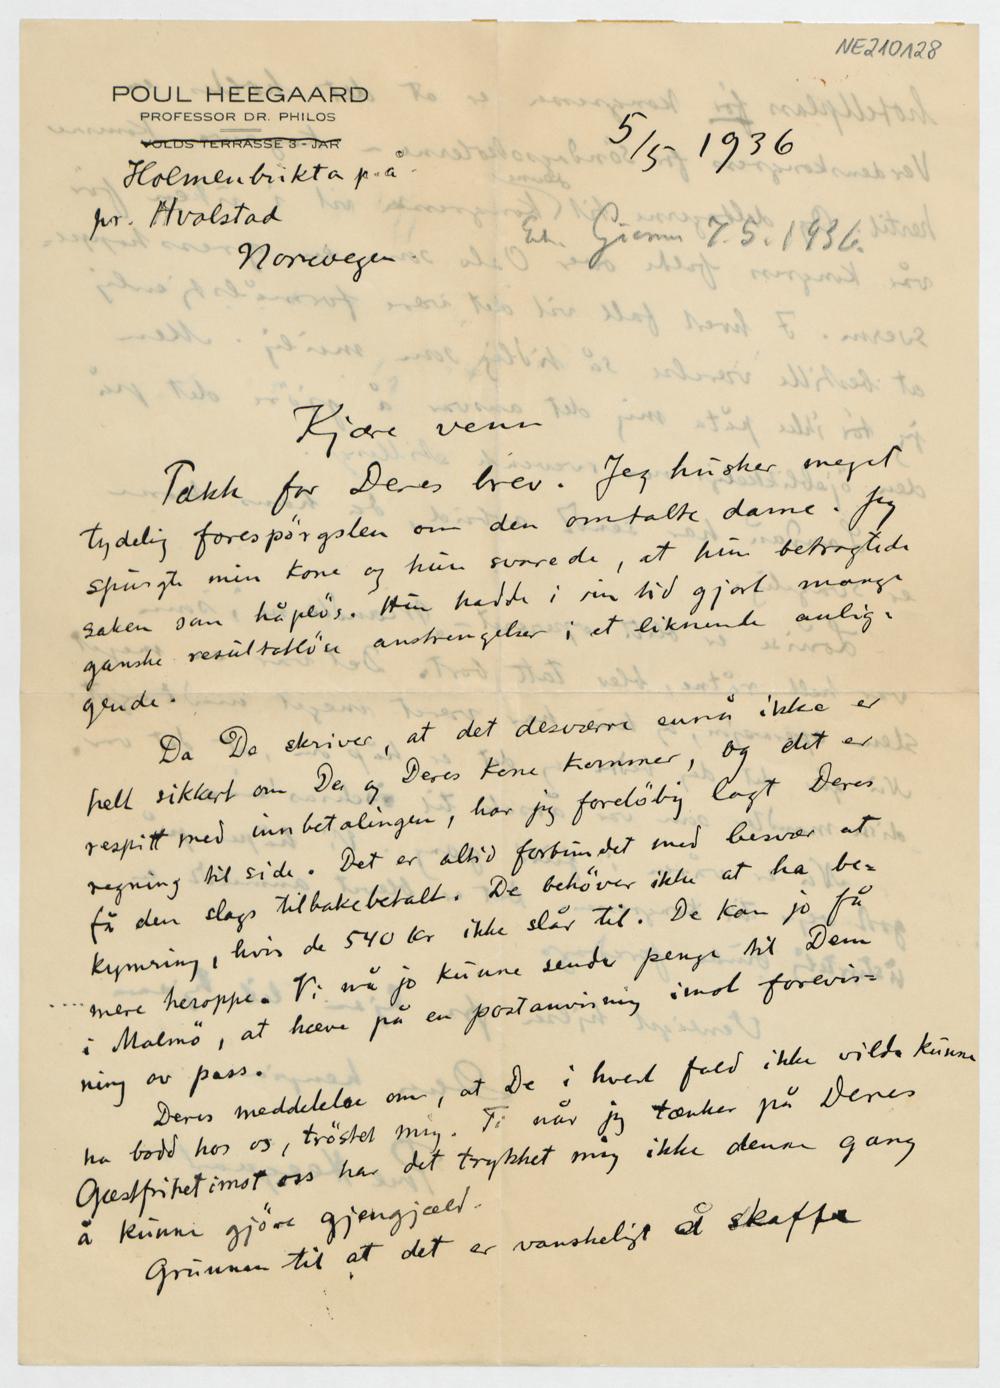 NE210128
POUL HEEGAARD
PROFESSOR DR. PHILOS
VOLDS TERRASSE 3 - JAR
5/5 1936
Holmenbukta p. å.
pr. Hvalstad
Norwegen.
7.5.1936.
Kjære venn
Takk for Deres brev. Jeg husker meget
tydelig forespørgslen om den omtalte dame. Jeg
spurgte min kone og hun svarede, at hun betragtede
saken som håpløs. Hun hadde i sin tid gjort mange
ganske resultatløse anstrengelser i et liknende anlig-
gende.
Da De skriver, at det desværre ennå ikke er
helt sikkert om De og Deres kone kommer, og det er
respitt med innbetalingen, har jeg foreløbig lagt Deres
regning til side. Det er altid forbundet med besvær at
få den slags tilbakebetalt. De behöver ikke at ha be=
kymring, hvis de 540 kr ikke slår til. De kan jo få
mere heroppe. Vi må jo kunne sende penge til Dem
i Malmö, at hæve på en postanvisning imot forevis=
ning av pass.
Deres meddelelse om, at De i hvert fald ikke vilde kunne
ha bodd hos os, tröstet mig. Ti når jeg tænker på Deres
Gæstfrihet imot oss har det trykket mig ikke denne gang
å kunne gjöre gjengjæld.
Grunnen til at det er vanskeligt å skaffe